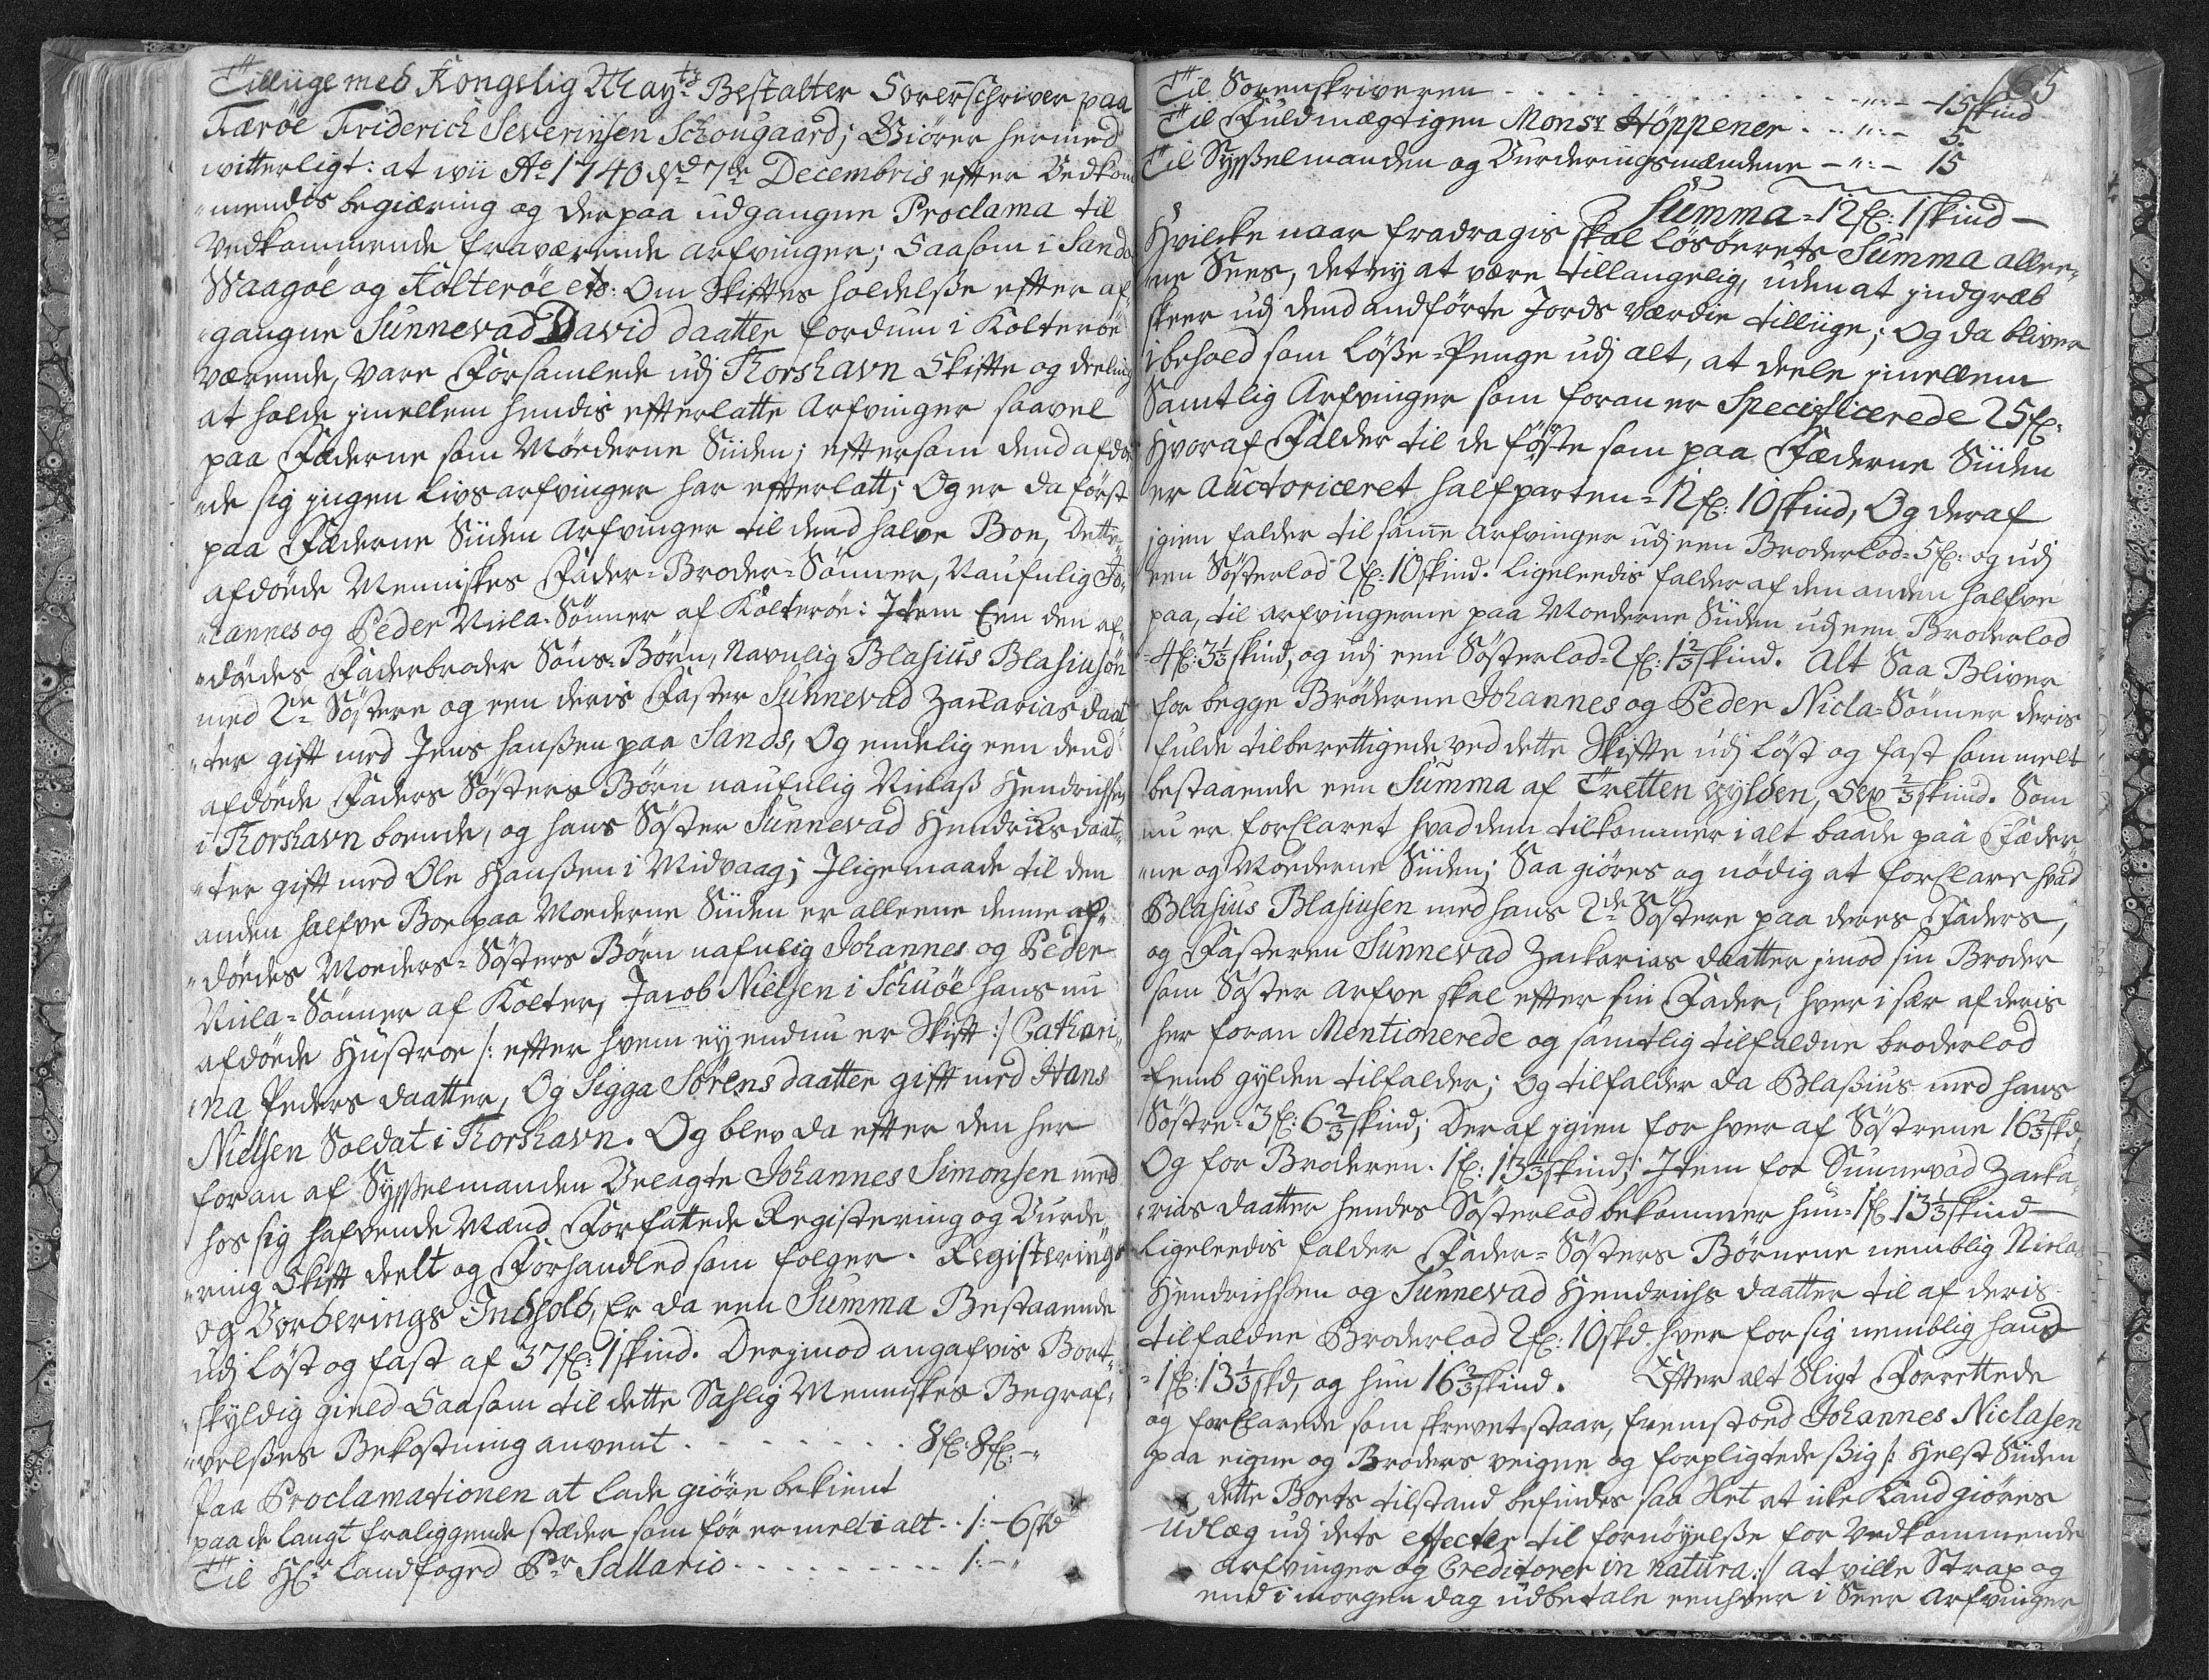 Tilliige med Kongelig Mayts Bestalter Sorenschriver paa
Færöe Friderich Severinsen Schougaard; Giörer hermed
witterligt: at wii Ao 1740 dnd 7de Decembris efter Vedkom
mendes begiæring og derpaa udgangne Proclama til
Vedkommende fraværende Arfvinger; Saasom i Sandö
Waagöe og Kolteröe etc: Om Skiftes holdelse efter af-
gangne Sunnevad David daatter fordum i Kolteröe
værende, vare Forsamlede udj Thorshavn Skifte og deeling
at holde jmellem hendis efterlatte Arfvinger saavel
paa Fæderne som Möderne Siiden; eftersom dend afdö
de sig jngen Livsarfvinger har efterlatt; Og er da först
paa Fæderne Siiden Arfvinger til dend halve Boe, Dette
afdöede Menniskes Fader-Broder-Sönner, Naufnlig Jo-
hannes og Peder Nicla-Sönner af Kolteröe: Jtem Een den af-
dödes Faderbroder Söns-Börn, Navnlig Blasius Blasiusön
med 2de Söstere og een deris Faster Sunnevad Zacharias daat
ter gift med Jens Hanssen paa Sands, Og endelig een dend
afdöede Faders Sösters Börn naufnlig Niclass Hendrichsen
i Thorshavn boende, og hans Söster Sunnevad Hendrichs daat-
ter gift med Ole Hanssen i Midvaag; Jligemaade til den
anden halfve Boe paa Moderne Siiden er alleene denne af-
dödes Moders-Sösters Börn nafnlig Johannes og Peder
Nicla-Sönner af Kolter, Jacob Nielsen i Schuöe hans nu
afdöede Hustroe /: efter hvem ey endnu er Skift :/ Cathari-
na Peders daatter, Og Sigga Sörens daatter gifft med Hans
Nielsen Soldat i Thorshavn. Og blev da efter den her
foran af Sysselmanden Velagte Johannes Simonsen med
hos sig hafvende Mænd Forfattede Registering og Vurde-
ring Skift deelt og Forhandled som folger. Registerings
og Vorderings Indhold, Er da een Summa Bestaaende
udj löst og fast af 37 fl: 1 skind. Derjmod angafvis Bort-
skyldig gield Saasom til dette Sahlig Menniskes Begraf-
velses Bekostning anvent . . . . . . . . 8 fl: 8 fl: -
Paa Proclamationen at lade giöre bekient
paa de langt fraliggende stæder som för er melt i alt . . 1: - 6 skd
Til Hr Landfoged Pr Sallario . . . . . . . . . 1: - "
65
Til Sorenskriveren . . . . . . . . . . . . " : - 15 skind
Til Fuldmægtigen Monsr Höppener . . . " : - 5.
Til Sysselmanden og Vurderingsmændene - " : - 15
Summa - 12 fl: 1 skind -
Hvilcke naar fradragis skal Lösöerets Summa allee-
ne Sees, det ey at være tillangelig, uden at jndgræb
skeer udj dend andförte Jords Værdie tilliige; Og da bliver
i behold som Lösse-Penge udj alt, at deele jmellem
Samtlig Arfvinger som foran er Specificerede 25 fl:
Hvoraf Falder til de föste som paa Fæderne Siiden
er Auctoriceret halfparten = 12 fl: 10 skind, Og deraf
jgien falder til samme Arfvinger udj een Broderlod - 5 fl: og udj
een Sösterlod 2 fl: 10 skind. Ligeleedis falder af den anden halfve
paa, til Arfvingerne paa Moderne Siiden udj een Broderlod
- 4 fl: 3 1/3 skind, og udj een Sösterlod - 2 fl: 1 2/3 skind. Alt Saa Bliver
for begge Bröderne Johannes og Peder Nicla-Sönner deris
fulde tilberettigede ved dette Skifte udj löst og fast som melt
bestaaende een Summa af Tretten gylden, Sex 2/3 skind. Som
nu er forklaret hvad dem tilkommer i alt baade paa Fæder
ne og Moderne Siiden; Saa giöres og nödig at forklare hvad
Blasius Blasiusen med hans 2de Söstere paa deres Faders,
og Fasteren Sunnevad Zacharias daatter jmod sin Broder
som Söster Arfve skal efter sin Fader, hver i sær af deris
her foran Mentionerede og samtlig tilfaldne broderlod
femb gylden tilfalder; og tilfalder da Blasius med hans
Söstre - 3 fl: 6 2/3 skind; Deraf jgien for hver af Söstrene 16 2/3 skd,
Og for Broderen. 1 fl: 13 1/3 skind; Jtem for Sunnevad Zacha-
rias daatter hendes Sösterlod bekommer hun - 1 fl: 13 1/3 skind -
Ligeleedis falder Fader-Sösters Börnene nemblig Niclas
Hendrichsen og Sunnevad Hendrichs daatter til af deris
tilfaldne Broderlod 2 fl: 10 skd hver for sig nemblig hand
- 1 fl: 13 1/3 skd, og hun 16 2/3 skind. Efter alt Sligt Forrettede
og forklarede som skrevet staar, fremstoed Johannes Niclasen
paa eigne og Broders veigne og forpligtede sig /: Helst Siiden
dette Boets tilstand befindes saa slet at icke Kand giöres
Udlæg udj dets effecter til fornöyelse for Vedkommende
Arfvinger og Creditorer in natura :/ at ville Strax og
end i morgen dag udbetale eenhver i Seer Arfvinger